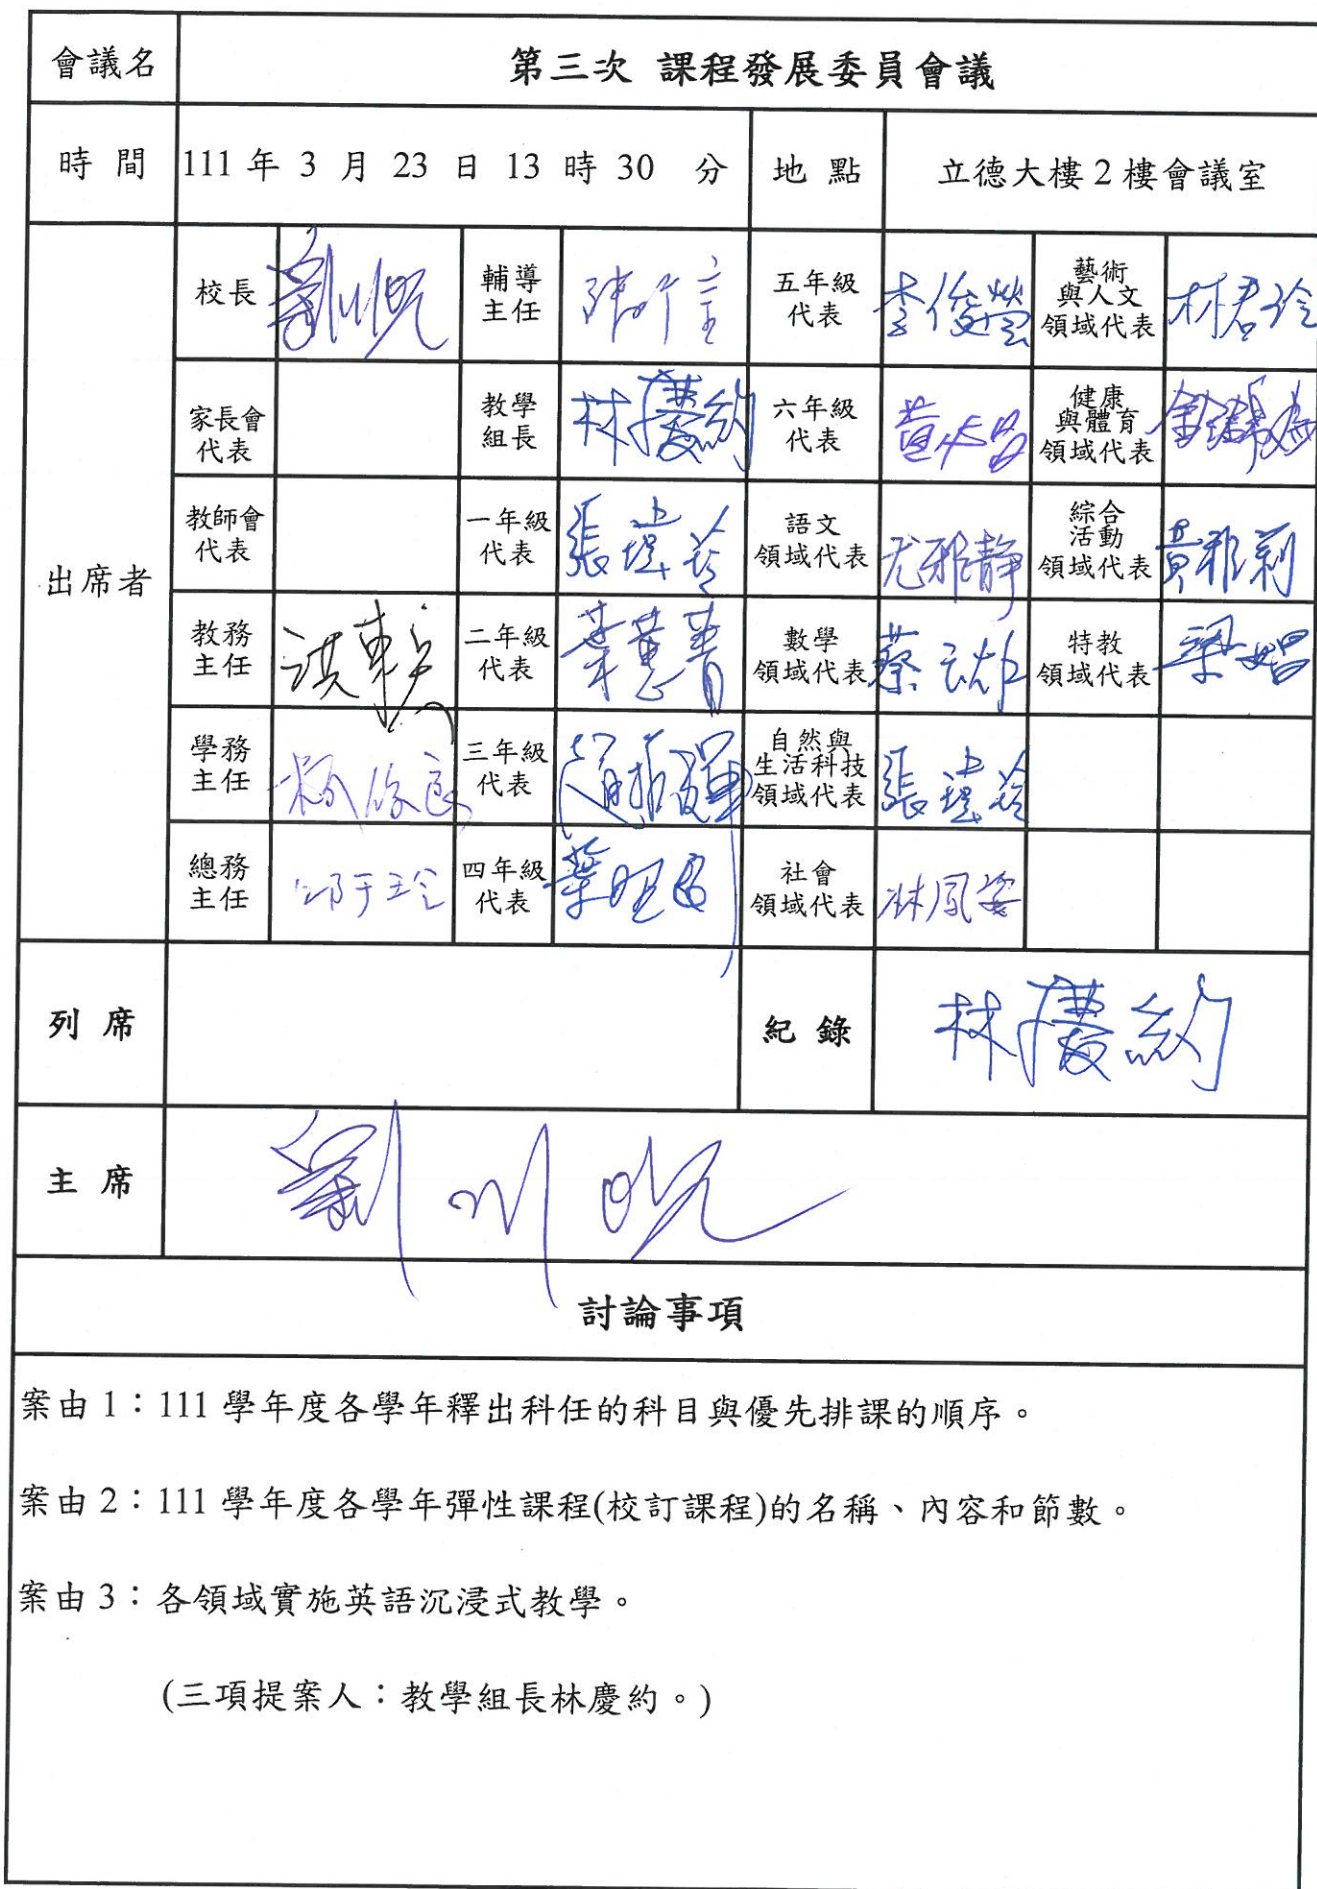 會議名 第三次 課程發展委員會議
時 間 111 年 3 月 23 日 13 時 30 分 地 點 立德大樓 2 樓會議室
出席者
校長 劉川 輔導主任 陳 五年級代表 李俊瑩 藝術與人文領域代表 林君玲
家長會代表 教學組長 林慶約 六年級代表 黃 健康與體育領域代表
教師會代表 一年級代表 張瑋芩 語文領域代表 尤雅靜 綜合活動領域代表 黃雅莉
教務主任 洪 二年級代表 葉蕙菁 數學領域代表 蔡 特教領域代表 梁
學務主任 楊 三年級代表 自然與生活科技領域代表 張瑋芩
總務主任 邱于玲 四年級代表 葉 社會領域代表 林鳳姿
列 席 紀 錄 林慶約
主 席 劉川
討論事項
案由 1：111 學年度各學年釋出科任的科目與優先排課的順序。
案由 2：111 學年度各學年彈性課程(校訂課程)的名稱、內容和節數。
案由 3：各領域實施英語沉浸式教學。
(三項提案人：教學組長林慶約。)